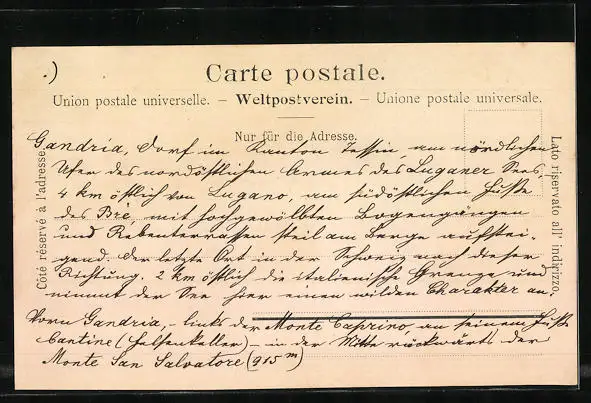 .)
Carte postale.
Union postale universelle. – Weltpostverein. – Unione postale universale.
Nur für die Adresse.
Côté réservé à l'adresse.
Lato riservato all' indirizzo.
Gandria, Dorf im Kanton Tessin, am nördlichen
Ufer des nordöstlichen Armes des Luganer Sees,
4 km östlich von Lugano, am südöstlichen Fuße
des Brè, mit hochgewölbten Bogengängen
und Rebenterrassen steil am Berge aufstei-
gend. Der letzte Ort in der Schweiz nach dieser
Richtung. 2 km östlich die italienische Grenze und
nimmt der See hier einen wilden Charakter an.
Vorn Gandria, – links der Monte Caprino, an seinem Fuße
Cantine (Felsenkeller) – in der Mitte rückwärts der
Monte San Salvatore (915 m)